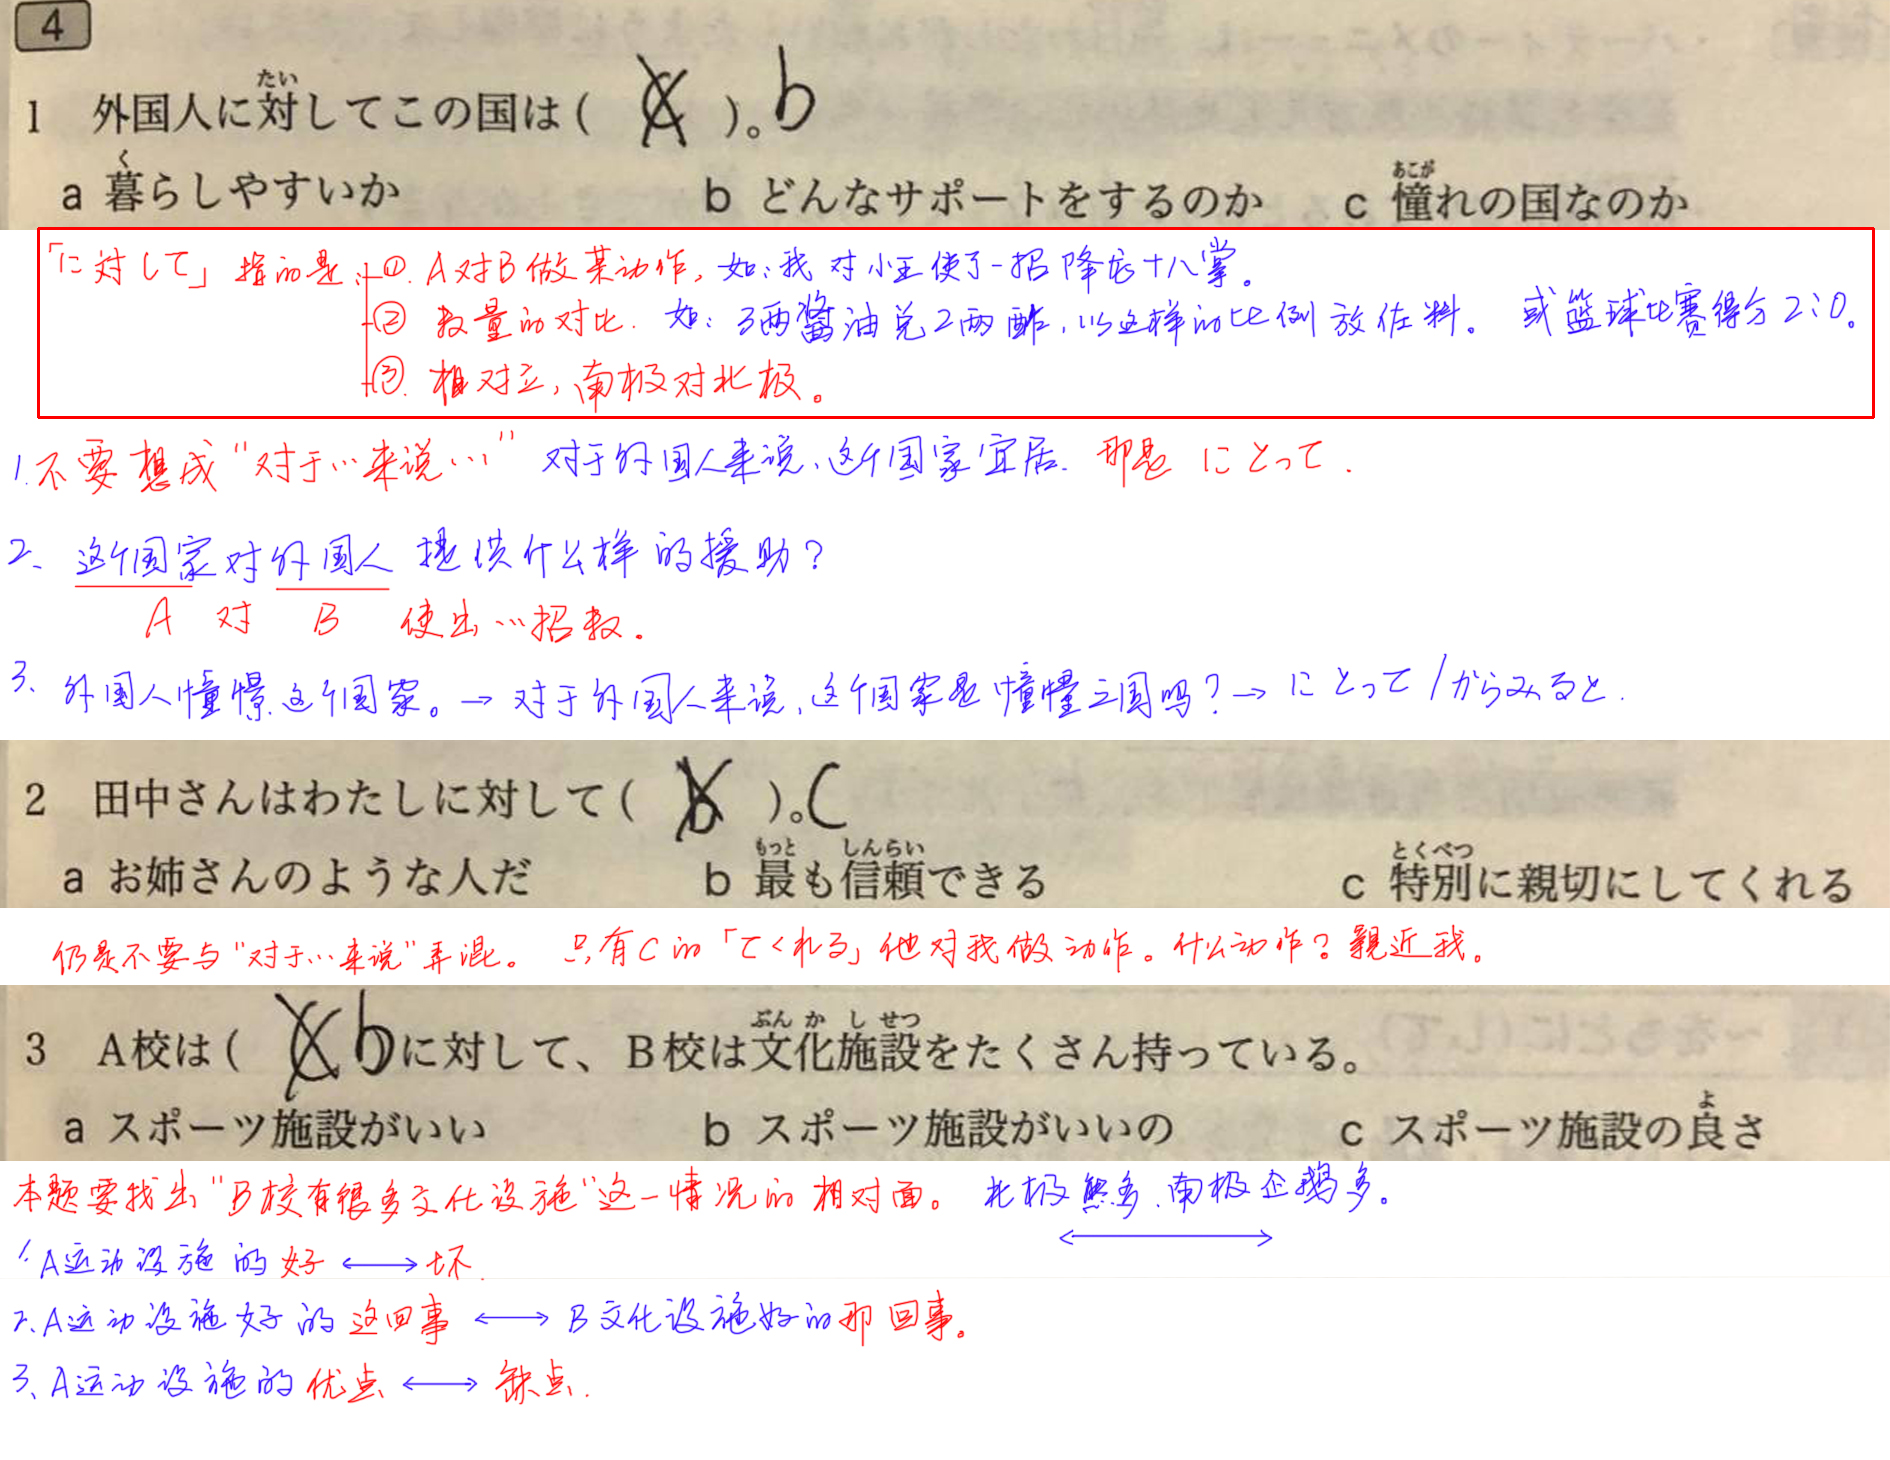 4
1 外国人に対してこの国は( c )。b
a 暮らしやすいか b どんなサポートをするのか c 憧れの国なのか
「に対して」指的是:①. A对B做某动作, 如:我对小王使了一招降龙十八掌。
② 数量的对比. 如: 3两酱油兑2两醋,以这样的比例放佐料。 或篮球比赛得分2:0。
③. 相对立,南极对北极。
1.不要想成"对于…来说…" 对于外国人来说、这个国家宜居. 那是 にとって.
2、这个国家对外国人提供什么样的援助?
A 对 B 使出…招数.
3、外国人憧憬这个国家。→对于外国人来说,这个国家是憧憬之国吗?→にとって/からみると.
2 田中さんはわたしに対して( b )。c
a お姉さんのような人だ b 最も信頼できる c 特別に親切にしてくれる
仍是不要与"对于…来说"弄混。 只有C的「てくれる」他对我做动作。什么动作?親近我。
3 A校は( c bに対して、B校は文化施設をたくさん持っている。
a スポーツ施設がいい b スポーツ施設がいいの c スポーツ施設の良さ
本题要找出"B校有很多文化设施"这一情况的相对面。 北极熊多、南极企鹅多。
1、A运动设施的好 ↔ 坏.
2、A运动设施好的这回事 ↔ B文化设施好的那回事。
3、A运动设施的优点 ↔ 缺点.